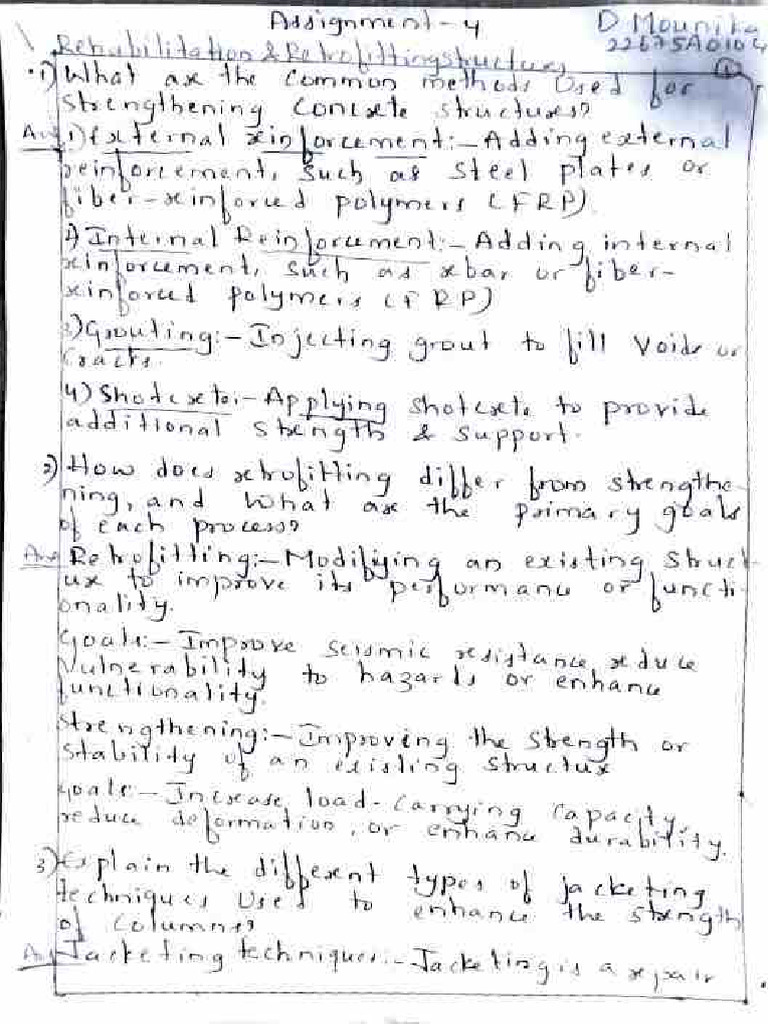 Assignment-4
D Mounika
Rehabilitation & Retrofitting structures
1
1) What are the common methods used for
strengthening concrete structures?
Ans 1) External reinforcement:- Adding external
reinforcement, such as steel plates or
fiber-reinforced polymers (FRP)
2) Internal Reinforcement:- Adding internal
reinforcement, such as rebar or fiber-
reinforced polymers (FRP)
3) Grouting:- Injecting grout to fill voids or
cracks.
4) Shotcrete:- Applying shotcrete to provide
additional strength & support.
2) How does retrofitting differ from strengthe-
ning, and what are the primary goals
of each process?
Ans Retrofitting:- Modifiying an existing struct-
ure to improve its performance or functi-
onality.
Goals:- Improve seismic resistance, reduce
vulnerability to hazards or enhance
functionality.
Strengthening:- Improving the strength or
stability of an existing structure
Goals:- Increase load-carrying capacity,
reduce deformation, or enhance durability.
3) Explain the different types of jacketing
techniques used to enhance the strength
of columns?
Ans Jacketing techniques:- Jacketing is a repair